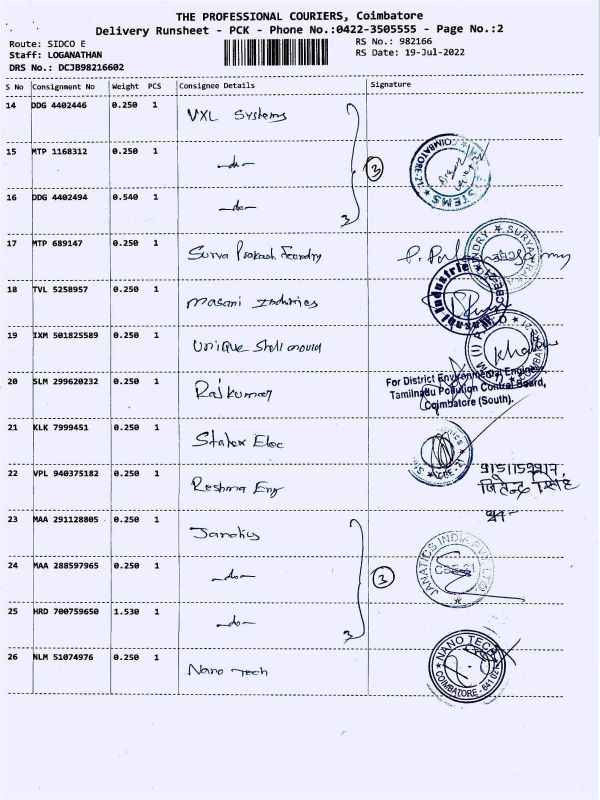 THE PROFESSIONAL COURIERS, Coimbatore
Delivery Runsheet - PCK - Phone No.:0422-3505555 - Page No.:2
Route: SIDCO E RS No.: 982166
Staff: LOGANATHAN RS Date: 19-Jul-2022
DRS No.: DCJB98216602
S No Consignment No Weight PCS Consignee Details Signature
14 DDG 4402446 0.250 1 VXL Systems
15 MTP 1168312 0.250 1 —do— 3
16 DDG 4402494 0.540 1 —do— 3
COIMBATORE-21
17 MTP 689147 0.250 1 Surya Prakash Foundry
18 TVL 5258957 0.250 1 Masani Industries
Masani Industrie
19 IXM 501825589 0.250 1 Unique Shell mould
20 SLM 299620232 0.250 1 Rajkumar
For District Environmental Engineer,
Tamilnadu Pollution Control Board,
Coimbatore (South).
21 KLK 7999451 0.250 1 Statex Elec
22 VPL 940375182 0.250 1 Reshma Eng
23 MAA 291128805 0.250 1 Janatics
24 MAA 288597965 0.250 1 —do— 3
JANATICS INDIA PVT LTD
CBE-21
25 HRD 700759650 1.530 1 —do— 3
26 NLM 51074976 0.250 1 Nano Tech
NANO TECH
COIMBATORE - 641 021